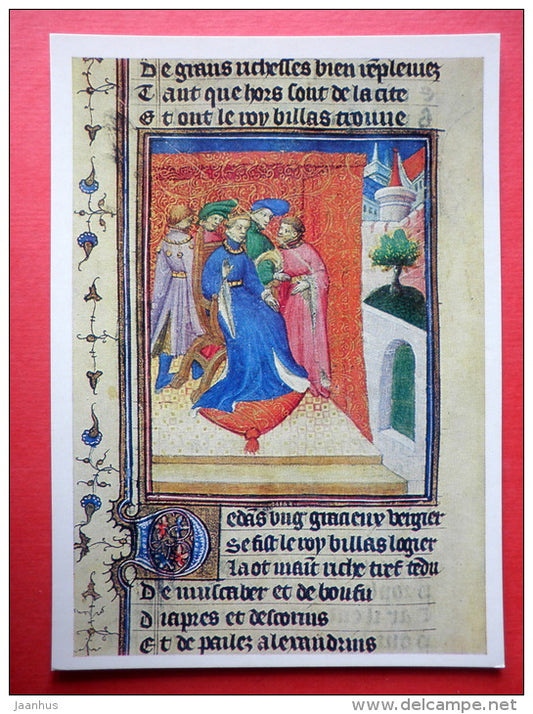 De grans richesses bien repleniez
Tant que hors sont de la cite
Et ont le roy billas trouue
Dedās vng gracieux vergier
Se fist le roy billas logier
La ot maīt riche tref tēdu
De mustabet et de boufu
Diapres et destorins
Et de pailez alexandrins
Jaanhus
www.delcampe.net